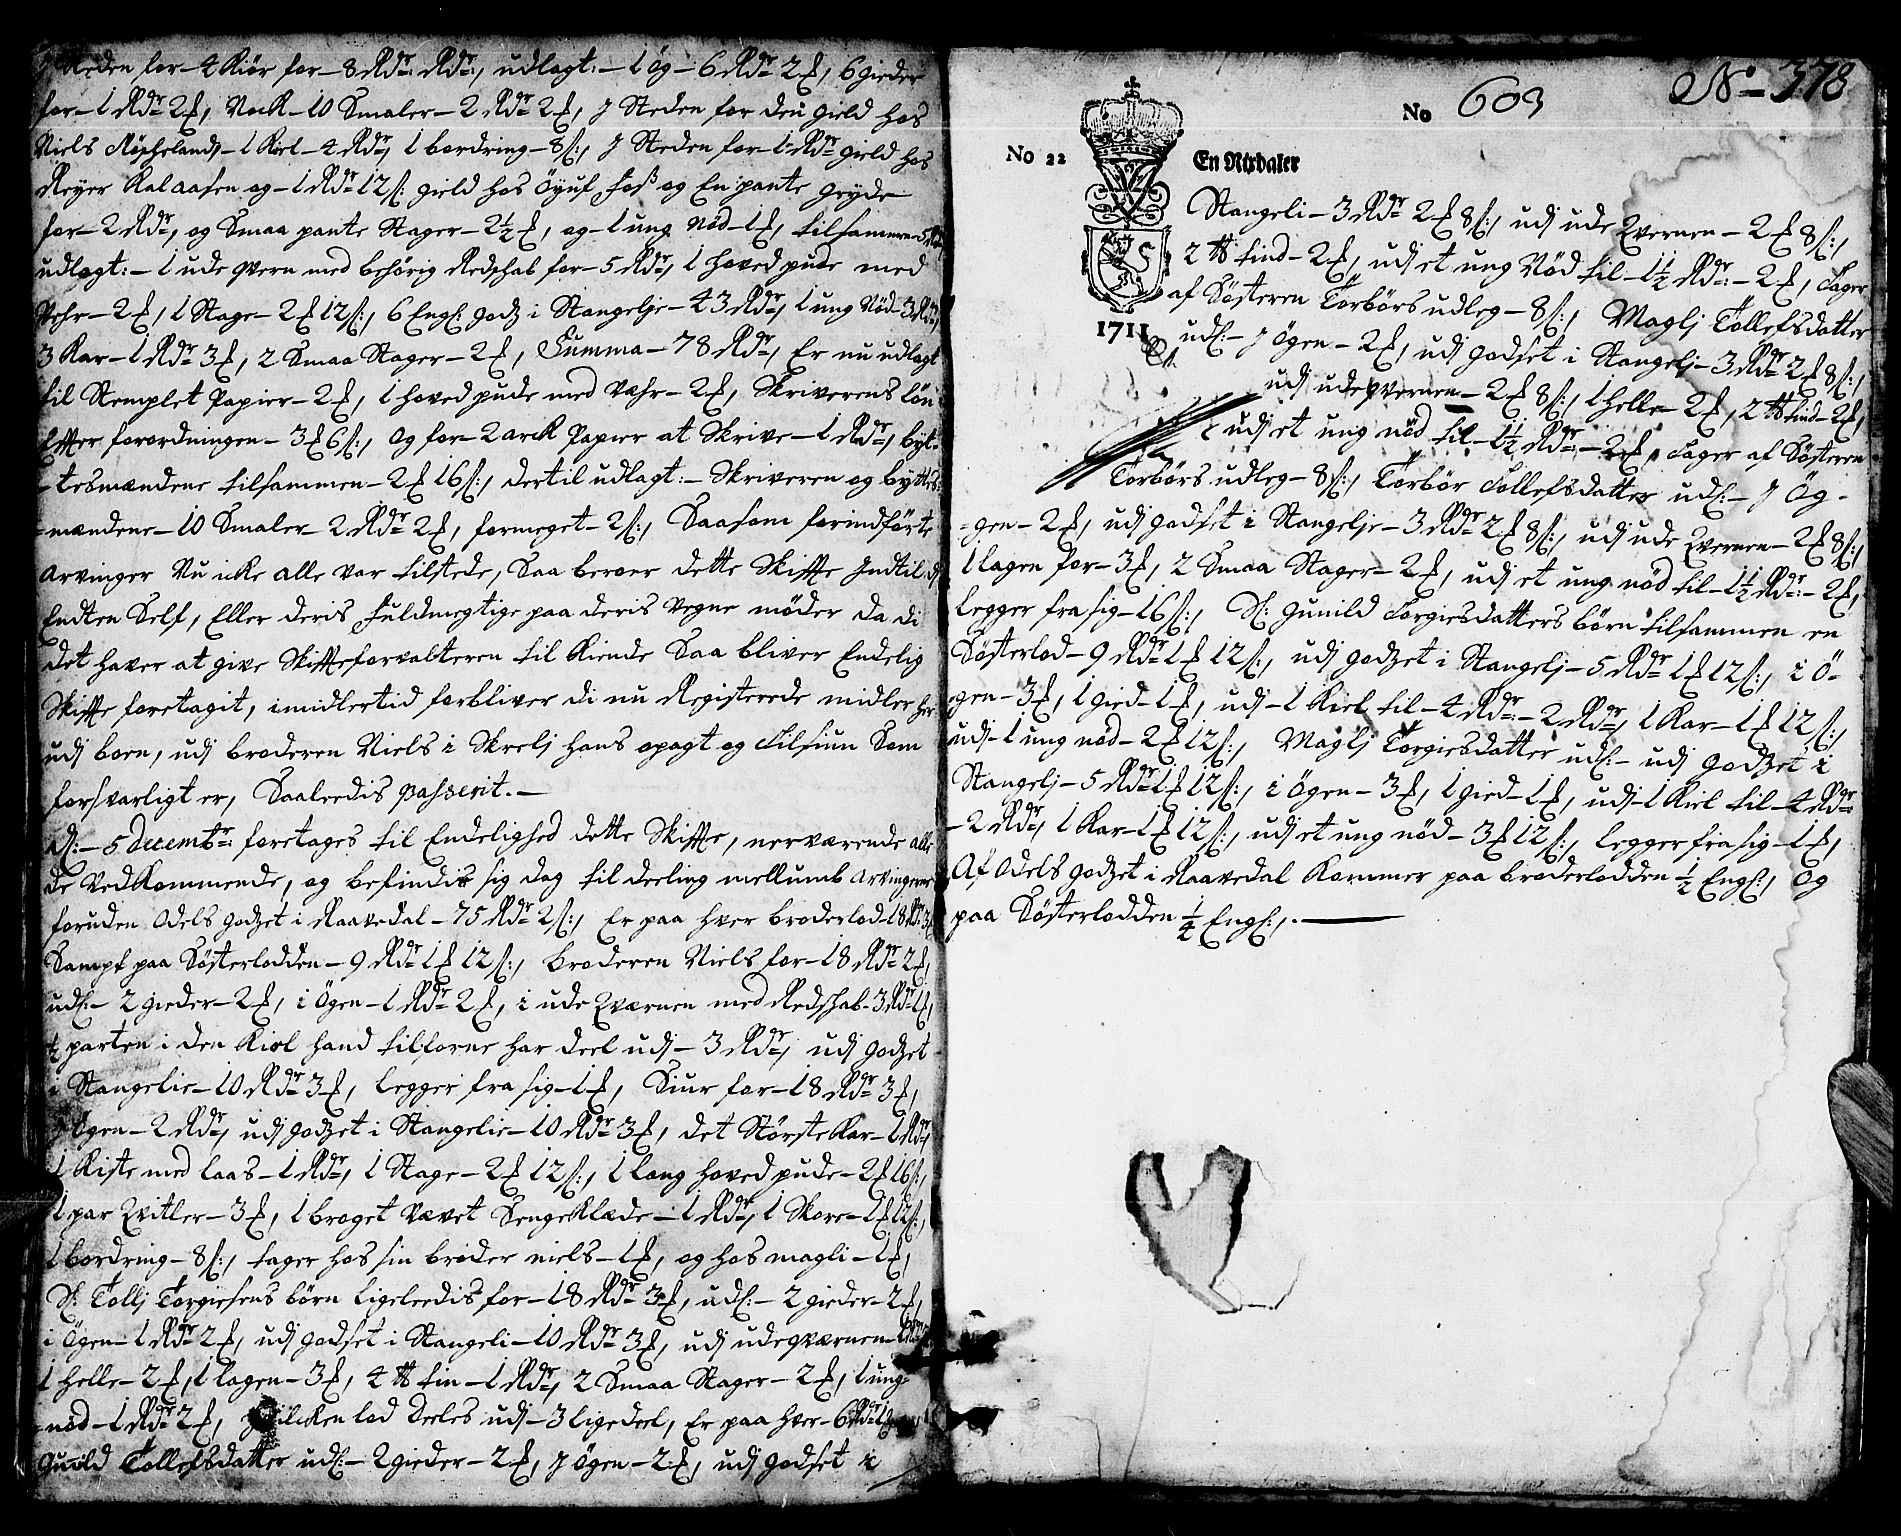 J Steden for - 4 Kiör for - 8 Rdr: Rdr:, udlagt: - 1 Ög - 6 Rdr 2 f, 6 gieder
for - 1 Rdr 2 f, Nock - 10 Smaler - 2 Rdr 2 f, J Steden for den gield hos
Niels Röscheland, - 1 Kiel - 4 Rdr, 1 bordring - 8 s:, J Steden for - 1 Rdr gield hos
Reyer Kalaasen og - 1 Rdr 12 s: gield hos Öyuf foss og En pante gryde
for - 2 Rdr, og Smaa pante Stager - 2½ f, og - 1 ung Nöd - 1 f, tilsammen - 5 Rdr
udlagt: - 1 ude qvern med behörig Redschab for - 5 Rdr, 1 hoved pude med
Vahr - 2 f, 1 Stage - 2 f 12 s:, 6 Engs: godz i Stangelje - 43 Rdr, 1 ung Nöd - 3 Rdr,
3 Kar - 1 Rdr 3 f, 2 Smaa Stager - 2 f, Summa - 78 Rdr, Er nu udlagt
til Stemplet Papier - 2 f, 1 hoved pude med Vahr - 2 f, Skriverens lön
Efter forordningen - 3 f 6 s:, og for - 2 arck Papier at Skrive - 1 Rdr, byt-
-tesmændene tilsammen - 2 f 16 s:, dertil udlagt: - Skriveren og byttes
=mændene - 10 Smaler - 2 Rdr 2 f, formeget - 2 s:, Saasom forindförte
Arvinger Nu icke alle var tilstede, Saa beroer dette Skiffte Indtil di
Endten Self, Eller deris fuldmegtige paa deris vegne möder da di
det haver at give Skiffteforvalteren til Kiende Saa bliver Endelig
Skiffte foretagit, imidlertid forbliver di nu Registerede midler her
udj boen, udj broderen Niels i Skrelj hans opagt og tilsiun Som
forsvarligt er, Saaleedis passerit. -
Ds: - 5 decembr: foretages til Endelighed dette Skiffte, nerværende alle
de Vedkommende, og befindis sig dog til deeling mellumb Arvingerne
foruden Odels godzet i Raavedal - 75 Rdr 2 s:, Er paa hver broderlod - 18 Rdr 3 f
Sampt paa Sösterlodden - 9 Rdr 1 f 12 s:, broderen Niels for - 18 Rdr 2 f,
uds: - 2 gieder - 2 f, i Ögen - 1 Rdr 2 f, i ude Qværnen med Redschab - 3 Rdr 1 f,
½ parten i den Kiel hand tilforne har deel udj - 3 Rdr, udj godzet
i Stangelie - 10 Rdr 3 f, legger fra sig - 1 f, Siur for - 18 Rdr 3 f,
J Ögen - 2 Rdr, udj godzet i Stangelie - 10 Rdr 3 f, det Störste Kar - 1 Rdr,
1 Kiste med laas - 1 Rdr, 1 Stage - 2 f 12 s:, 1 lang hoved pude - 2 f 16 s:,
1 par Qvitler - 3 f, 1 broget vævet Sengeklæde - 1 Rdr, 1 Skore - 1 f 12 s:,
1 bordring - 8 s:, tager hos sin broder niels - 1 f, og hos magli - 1 f,
Sl: Tollj Torgiesens börn ligeleedis for - 18 Rdr 3 f, uds: - 2 gieder - 2 f,
i Ögen - 1 Rdr 2 f, udj godset i Stangeli - 10 Rdr 3 f, udj udeqværnen -
1 helle - 2 f, 1 lagen - 3 f, 4 ℔ tin - 1 Rdr, 2 Smaa Stager - 2 f, 1 ung-
-nöd - 1 Rdr 2 f, hvilcken lod deeles udj - 3 ligedeel, Er paa hver - 6 Rdr
Gunild Tollefsdatter uds: - 2 gieder - 2 f, J Ögen - 2 f, udj godset i
No - 378
No 603
No 22 En Rixdaler
1711
Stangeli - 3 Rdr 2 f 8 s:, udj ude Qvernen - 2 f 8 s:,
2 ℔ tind - 2 f, udj et ung Nöd til - 1½ Rdr: - 2 f, tager
af Sösteren Torbörs udleg - 8 s:, Maglj Tollefsdatter
uds: - J Ögen - 2 f, udj godset i Stangelj - 3 Rdr 2 f 8 s:,
udj udeqvernen - 2 f 8 s:, 1 helle - 2 f, 2 ℔ tind - 2 f,
udj et ung nöd til - 1½ Rdr: - 2 f, tager af Sösteren
Torbörs udleg - 8 s:, Torbör Tollefsdatter uds: - J Ög-
-gen - 2 f, udj godset i Stangelje - 3 Rdr 2 f 8 s:, udj ude Qvernen - 2 f 8 s:,
1 lagen for - 3 f, 2 Smaa Stager - 2 f, udj et ung nöd til - 1½ Rdr: - 2 f,
legger fra sig - 16 s:, Sl: gunild Torgiesdatters börn tilsammen en
Sösterlod - 9 Rdr 1 f 12 s:, udj godzet i Stangelj - 5 Rdr 1 f 12 s:, i Ö-
-gen - 3 f, 1 gied - 1 f, udj - 1 Kiel til - 4 Rdr: - 2 Rdr, 1 Kar - 1 f 12 s:,
udj - 1 ung nöd - 2 f 12 s:, Maglj Torgiesdatter uds: - udj godzet i
Stangelj - 5 Rdr 1 f 12 s:, i Ögen - 3 f, 1 gied - 1 f, udj - 1 Kiel til - 4 Rdr:
- 2 Rdr, 1 Kar - 1 f 12 s:, udj et ung nöd - 3 f 12 s:, legger fra sig - 1 f,
Af Odels godzet i Raavedal Kommer paa broderlodden ½ Engs:, og
paa Sösterlodden ¼ Engs:, . -